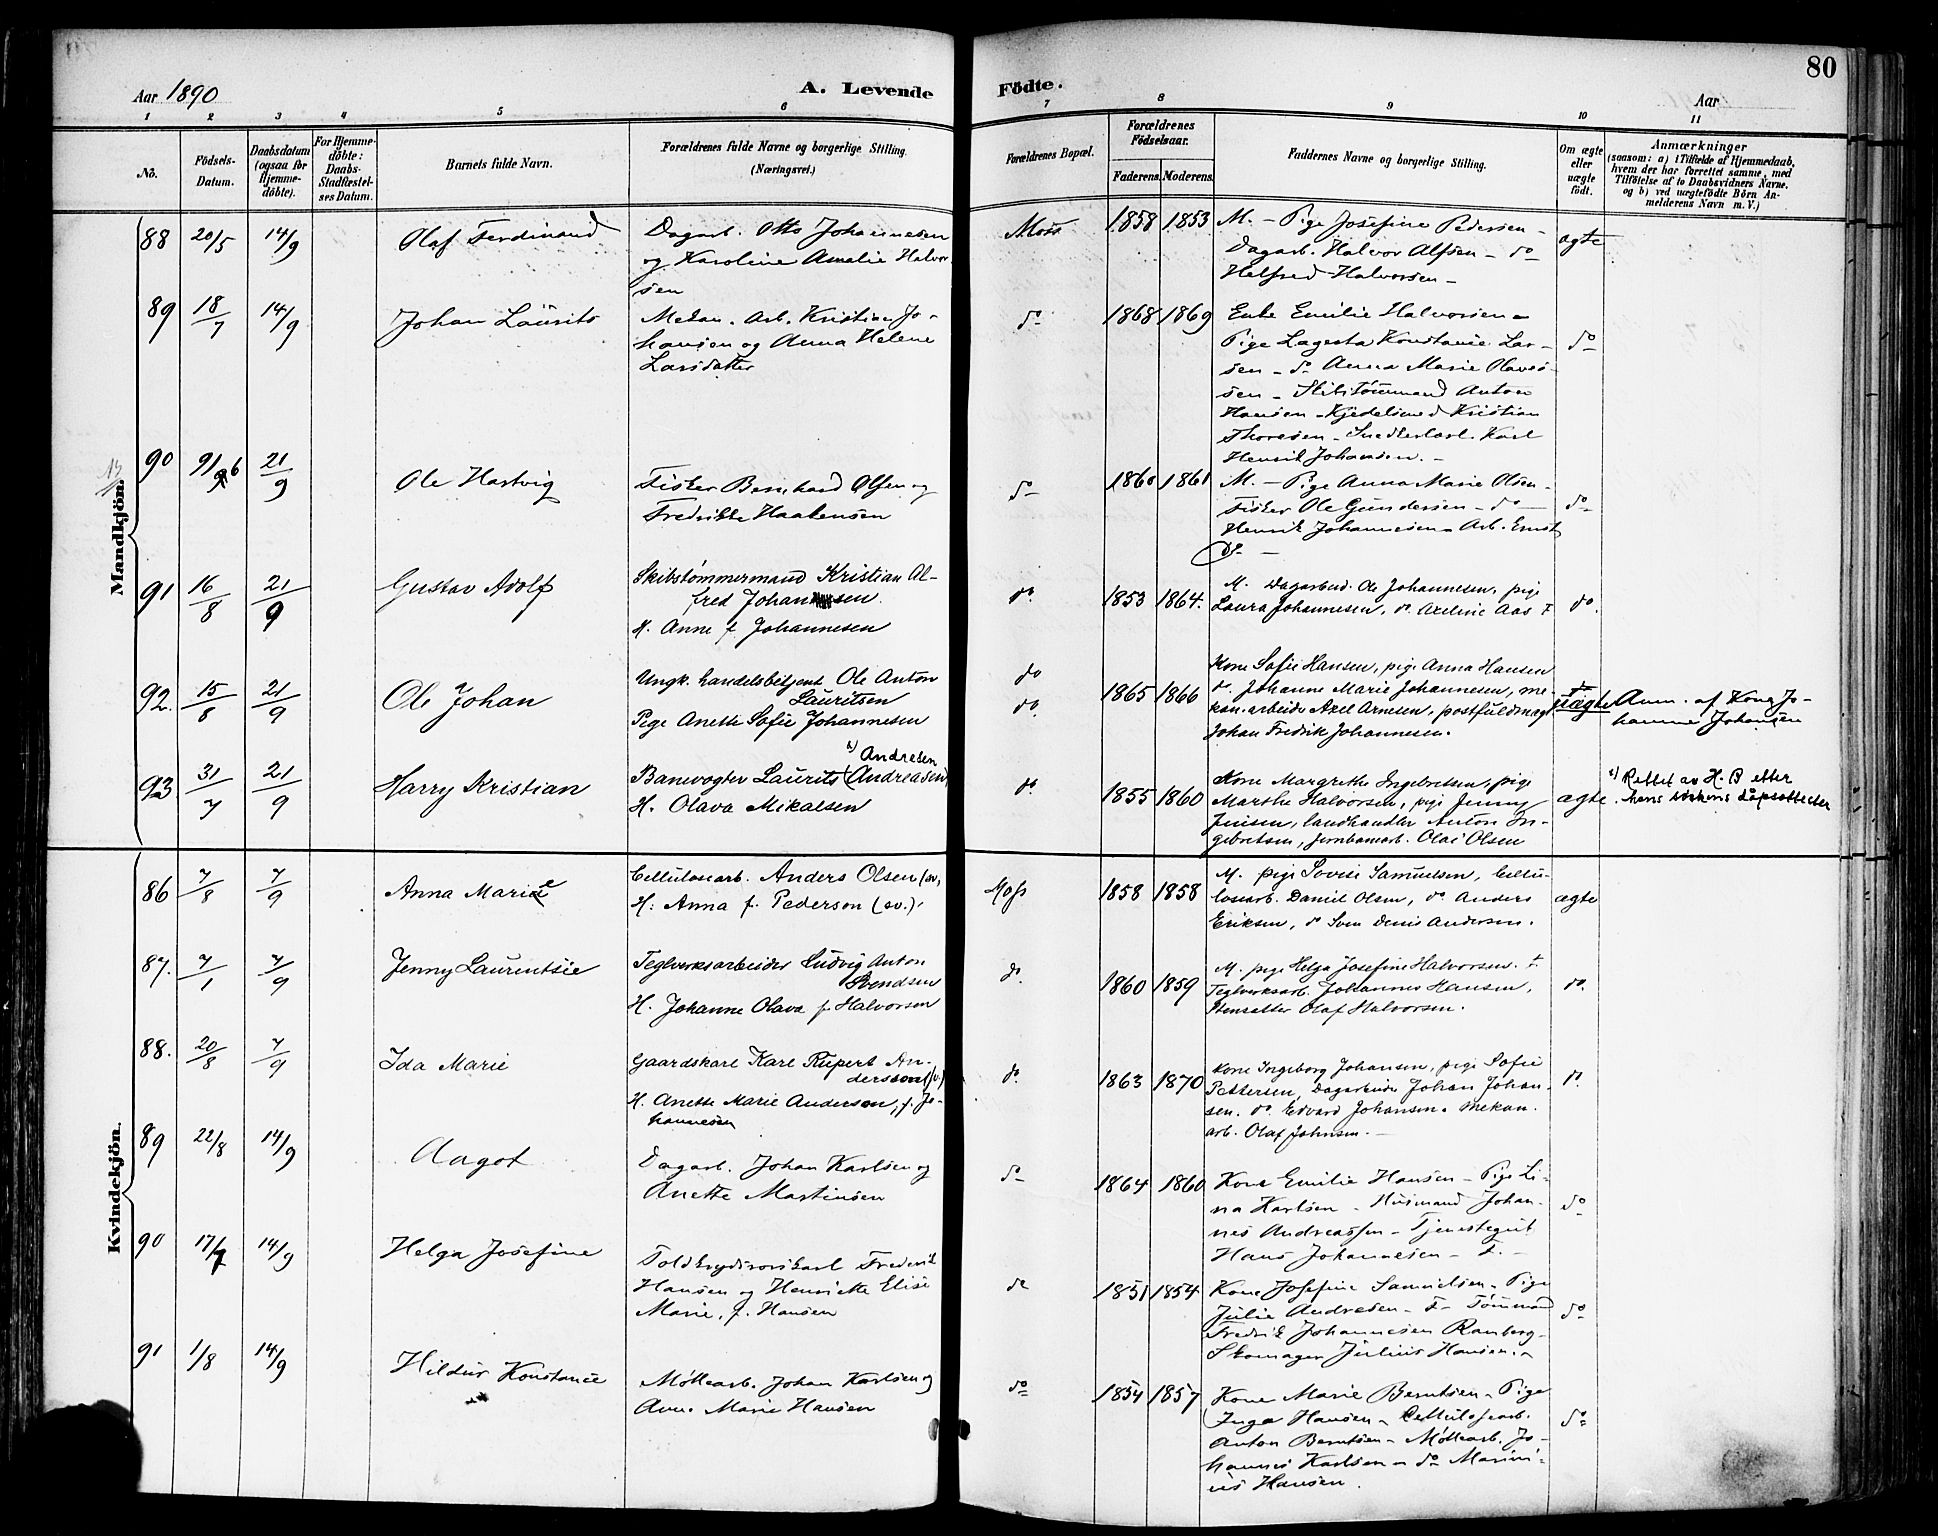 Aar 1890
A. Levende
Födte.
Aar
80
1 2 3 4 5 6 7 8 9 10 11
No.
Födsels-
Datum.
Daabsdatum
(ogsaa for
Hjemme-
döbte).
For Hjemme-
döbte:
Daabs-
Stadfæstel-
ses Datum.
Barnets fulde Navn.
Forældrenes fulde Navne og borgerlige Stilling.
(Næringsvei.)
Forældrenes Bopæl.
Forældrenes
Födselsaar.
Faderens. Moderens.
Faddernes Navne og borgerlige Stilling.
Om ægte
eller
uægte
födt.
Anmærkninger
(saasom: a) i Tilfælde af Hjemmedaab,
hvem der har forrettet samme, med
Tilföielse af to Daabsvidners Navne,
og b) ved uægtefödte Börn An-
melderens Navn m. V.)
Mandkjön.
88 20/5 14/9 Olaf Ferdinand
Dagarb. Otto Johannesen
og Karoline Amalie Halvor
sen
Moss 1858 1853
M. – Pige Josefine Pedersen –
Dagarb. Halvor Alfsen – do
Helfred Halvorsen –
ægte
89 18/7 14/9 Johan Laurits
Mekan. Arb. Kristian Jo-
hansen og Anna Helene
Larsdatter
do 1868 1869
Enke Emilie Halvorsen –
Pige Lagerta Konstance Lar-
sen – do Anna Marie Olavs-
sen – Skibstømmermand Anton
Hansen – Kjedelsmed Kristian
Thoresen – Snedkerarb. Karl
Henrik Johansen. –
do
90 9/6 21/9 Ole Hartvig
Fisker Bernhard Olsen og
Fredrikke Haakensen
do 1860 1861
M. – Pige Anna Marie Olsen –
Fisker Ole Gundersen – do –
Henrik Johannesen – Arb. Ernst
do –
do
91 16/8 21/9 Gustav Adolf
Skibstømmermand Kristian Al-
fred Johansen.
H. Anne f. Johannesen
do. 1853 1864.
M. Dagarbeid. Ole Johannesen, pige
Laura Johannesen, do. Axeline Aas F
do.
92. 15/8 21/9 Ole Johan
Ungk. handelsbetjent Ole Anton
Lauritsen
Pige Anette Sofie Johannesen
do
do. 1865 1866
Kone Sofie Hansen, pige Anna Hansen
do. Johanne Marie Johannesen, me-
kan. arbeider Axel Arnesen, postfuldmægt
Johan Fredrik Johannesen.
uægte
Anm. af Kone Jo-
hanne Johansen
93. 31/7 21/9 Harry Kristian
x) Andresen
Banevogter Laurits (Andreasen)
H. Olava Mikalsen
do. 1855 1860
Kone Margrethe Ingebretsen, pige
Marthe Halvorsen, pige Jenny
Jensen, landhandler Anton In-
gebretsen, jernbanearb. Olai Olsen
ægte.
x) Rettet av H. B etter
hans søskens dåpsattester
Kvindekjön.
86 7/8 7/9 Anna Marie
Cellulosearb. Anders Olsen (sv.)
H. Anna f. Pederson (sv.).
Moss 1858 1858
M. pige Lovise Samuelsen, Cellu-
losearb. Daniel Olsen, do. Anders
Eriksen, do Sven Denis Andersen.
ægte
87. 7/1 7/9 Jenny Laurentsie
Teglverksarbeider Ludvig Anton
Svendsen
H. Johanne Olava f. Halvorsen
do. 1860 1859
M. pige Helga Josefine Halvorsen. F.
Teglverksarb. Johannes Hansen,
Stensætter Olaf Halvorsen.
do.
88. 20/8 7/9 Ida Marie
Gaardskarl Karl Rupert An-
dersson (sv.)
H. Anette Marie Anderson, f. Jo-
hannesen
do. 1863 1870
Kone Ingeborg Johansen, pige Sofie
Pettersen, Dagarbeider Johan Johan-
sen. do. Edvard Johansen. mekan.
arb. Olaf Johnsen. –
do.
89 22/8 14/9 Aagot
Dagarb. Johan Karlsen og
Anette Martinsen
do 1864 1860
Kone Emilie Hansen – Pige Li-
na Karlsen – Husmand Johan-
nes Andreassen – Tjenestegut
Hans Johannesen – F. –
do
90 17/7 14/9 Helga Josefine
Toldkrydsrorskarl Frederik
Hansen og Henriette Elise
Marie, f. Hansen
do 1851 1854
Kone Josefine Samuelsen – Pige
Julie Andresen – F – Tømmermd
Fredrik Johannesen Ramberg –
Skomager Julius Hansen. –
do
91 1/8 14/9 Hildur Konstance
Møllearb. Johan Karlsen og
Anne Marie Hansen
do 1854 1857
Kone Marie Berntsen – Pige
Inga Hansen – Cellulosearb.
Anton Berntsen – Møllearb. Jo-
hannes Karlsen – do Marini-
us Hansen.
do